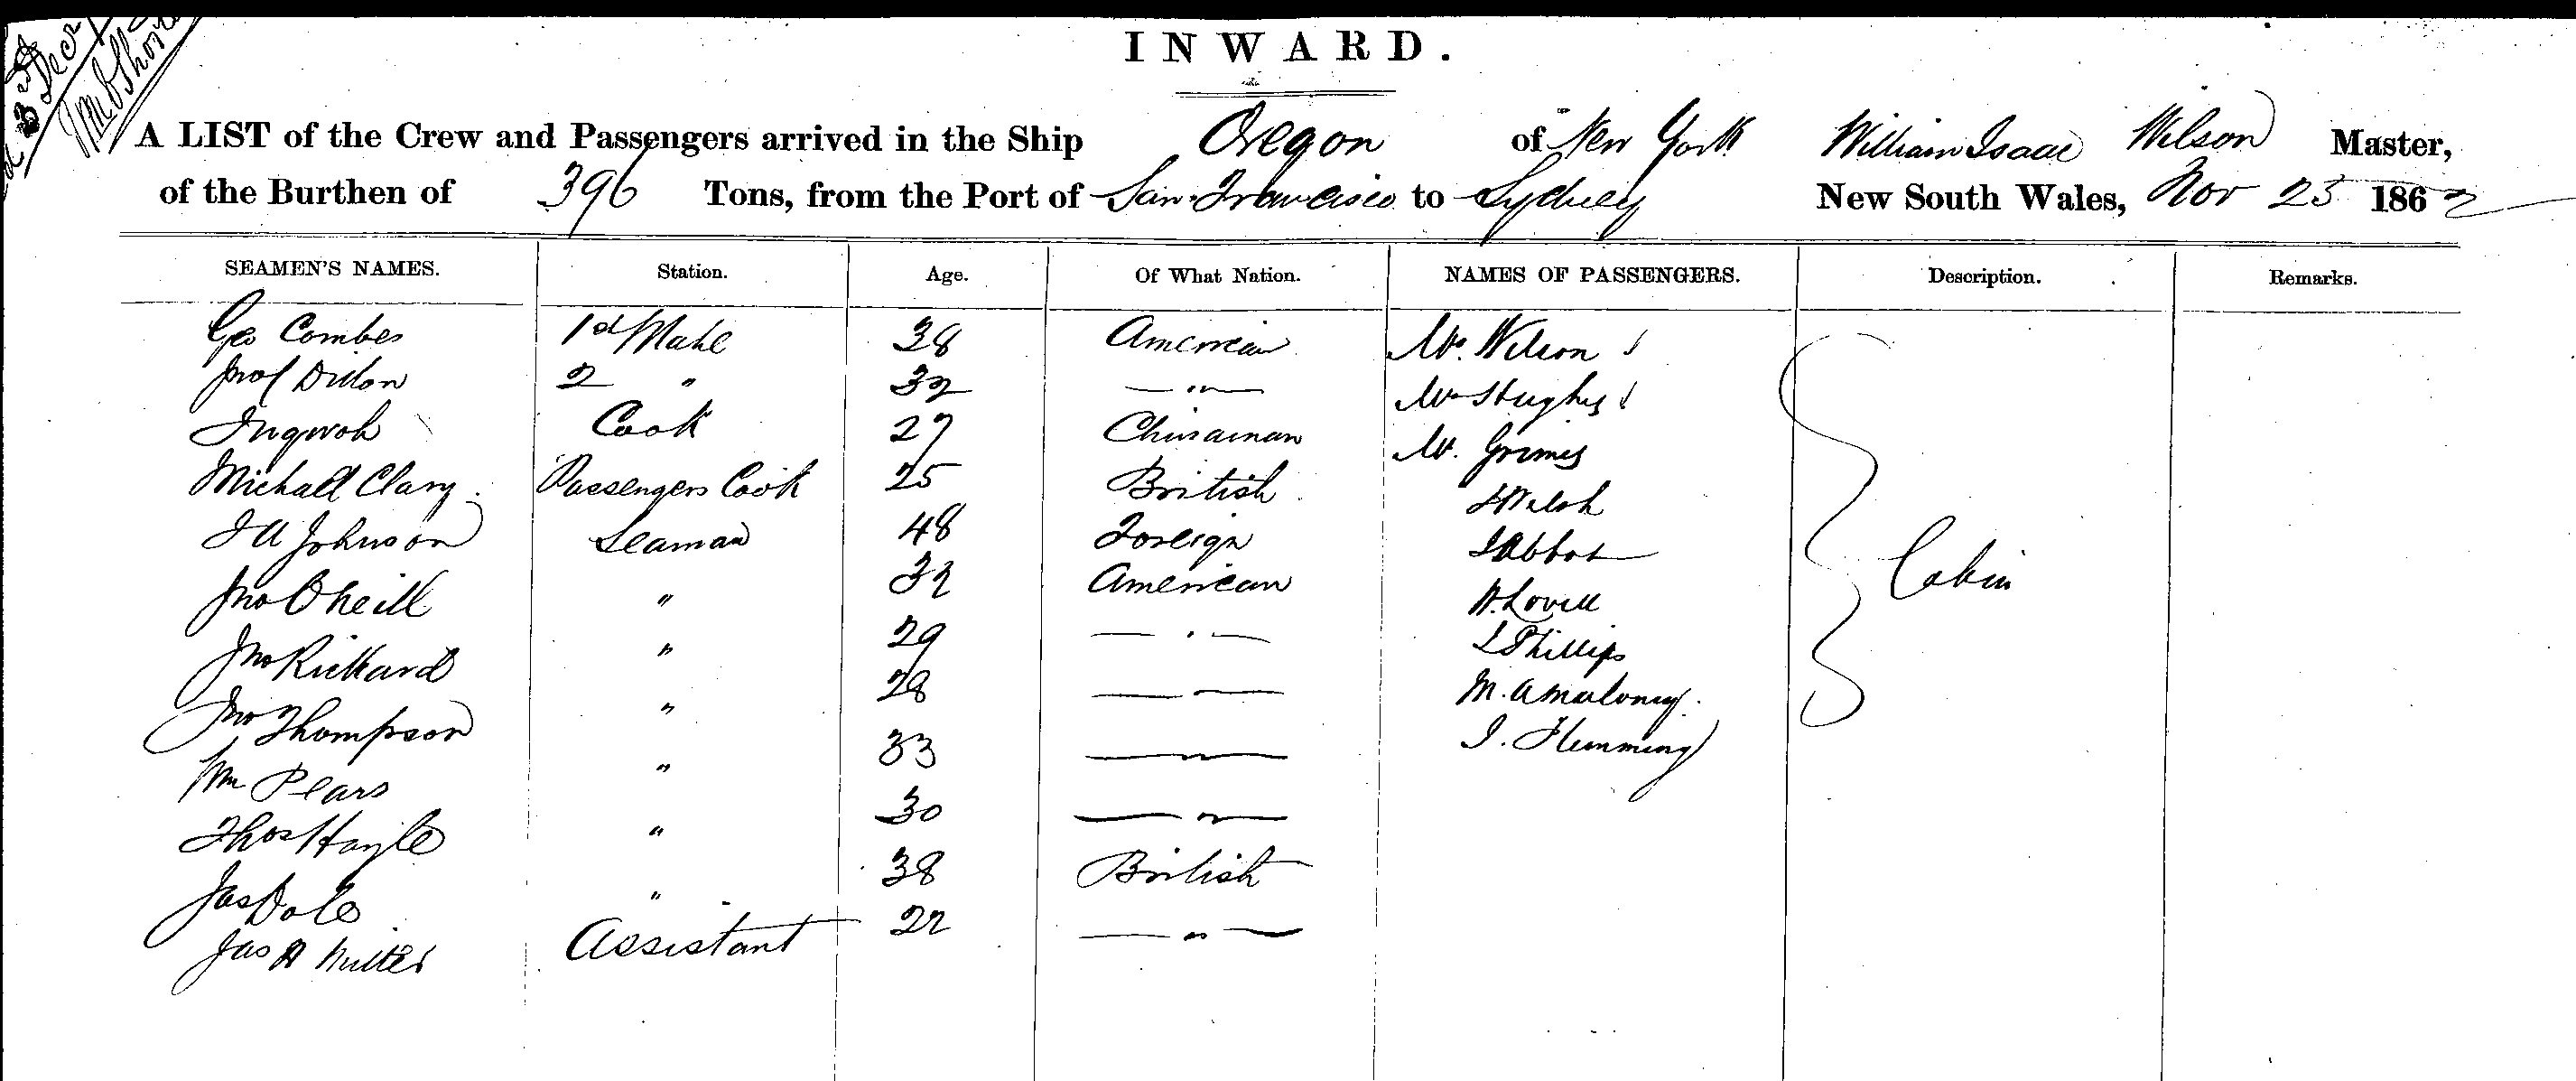 Decr
INWARD.
A LIST of the Crew and Passengers arrived in the Ship Oregon of New York William Isaac Wilson Master,
of the Burthen of 396 Tons, from the Port of San Francisco to Sydney New South Wales, Nov 25 1862
SEAMEN'S NAMES. Station. Age. Of What Nation. NAMES OF PASSENGERS. Description. Remarks.
Geo Combes 1st Mate 38 American Mr. Wilson
Dillon 2 " 32 — " — Mr Hughes
Ingwoh Cook 27 Chinaman Mr. Grimes
Michael Clary Passengers Cook 25 British J Welsh
J A Johnson Seaman 48 Foreign Abbot
Jno Oneill " 32 American W. Lovell
Jno Rickard " 29 — " — L Phillips
Jno Thompson " 28 — " — M. A Maloney.
Wm Pears " 33 — " — J. Flemming
Thos Hayle " 30 — " —
Jas Dole " 38 British
Jas A Miller Assistant 22 — " —
Cabin